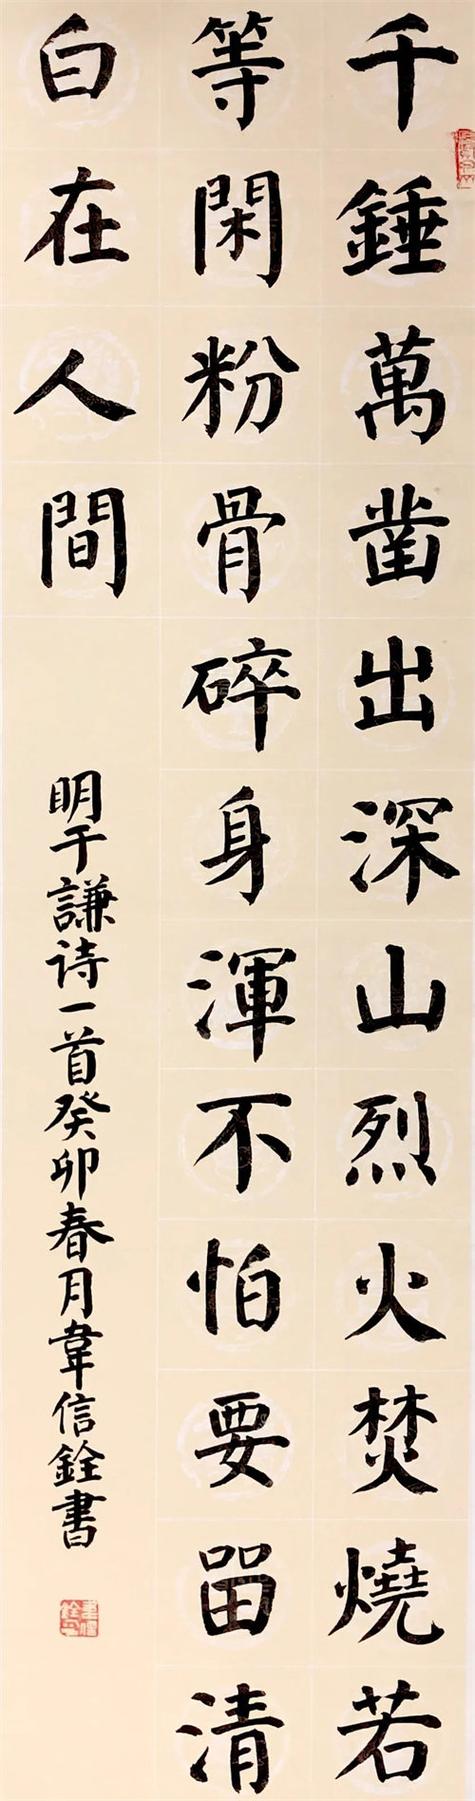 千錘萬凿出深山烈火焚燒若
等閑粉骨碎身渾不怕要畱清
白在人間
明于謙诗一首癸卯春月韋信銓書